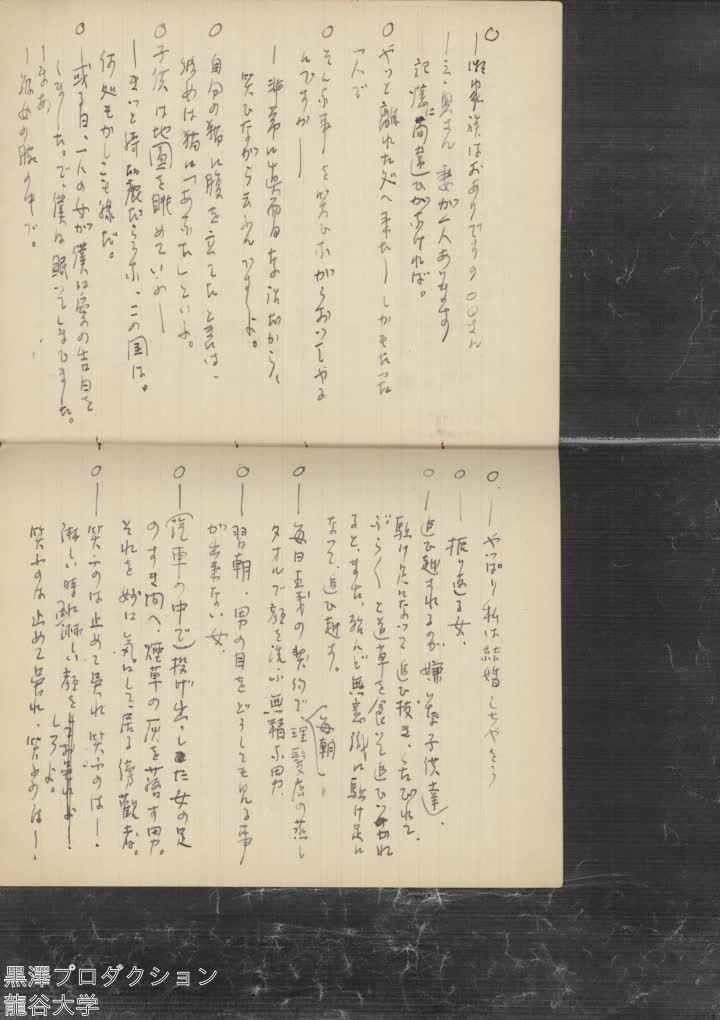 ○
―御家族はおありですの ○○さん
―え、奥さん 妻が一人あります
記憶に間違ひがなければ。
○やっと離れた処へ来た―しかもたった
一人で
○そんな事を笑ひながらおっしゃる
んですか―
―非常に真面目な話だから、
笑ひながら云ふんですよ。
○自分の猫に腹を立てたと云は、
始めは猫に「あなた」といふ。
○子供は地図を眺めてい
―きっと綺麗だらうな、この国は。
何処もかしこも緑だ。
○―或る日、一人の女が僕に愛の告白を
しました。で、僕は眠ってしまひました。
―まあ
―彼女の腕の中で。
○―やっぱり私は結婚しちやをう
○―振り返る女。
○―追ひ越されるのが嫌ひな子供達。
駈け足になって追ひ抜き、くたびれて、
ぶらぶらと道草を食ひ追ひつかれ
ると、また、殆んど無意識に駈け足に
なって、追ひ越す。
○―毎日五銭の契約で、毎朝理髪店の蒸し
タオルで顔を洗ふ無精な男。
○―翌朝、男の目をどうしても見る事
が出来ない女。
○―(汽車の中で)投げ出した女の足
のすき間へ、煙草の灰を落す男。
それを妙に気にして居る傍観者。
○―笑ふのは止めて呉れ 笑ふのは―.
淋しい時は淋しい顔をしろよ。
笑ふのは止めて呉れ、笑ふのは―.
黒澤プロダクション
龍谷大学